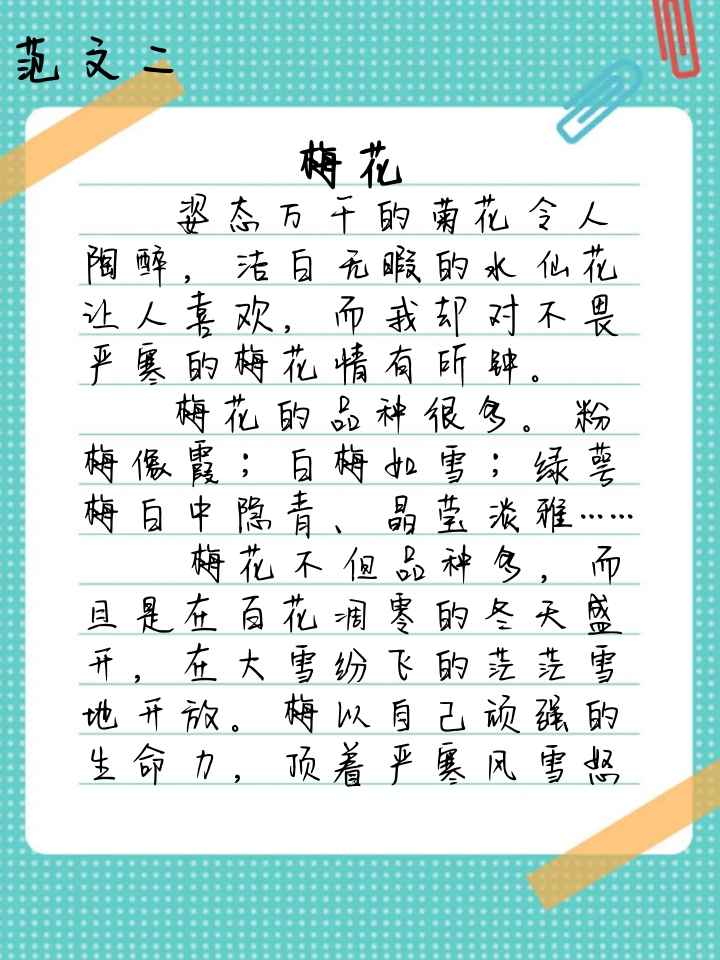 范文二
梅花
姿态万千的菊花令人
陶醉，洁白无暇的水仙花
让人喜欢，而我却对不畏
严寒的梅花情有所钟。
梅花的品种很多。粉
梅像霞；白梅如雪；绿萼
梅白中隐青、晶莹淡雅……
梅花不但品种多，而
且是在百花凋零的冬天盛
开，在大雪纷飞的茫茫雪
地开放。梅以自己顽强的
生命力，顶着严寒风雪怒